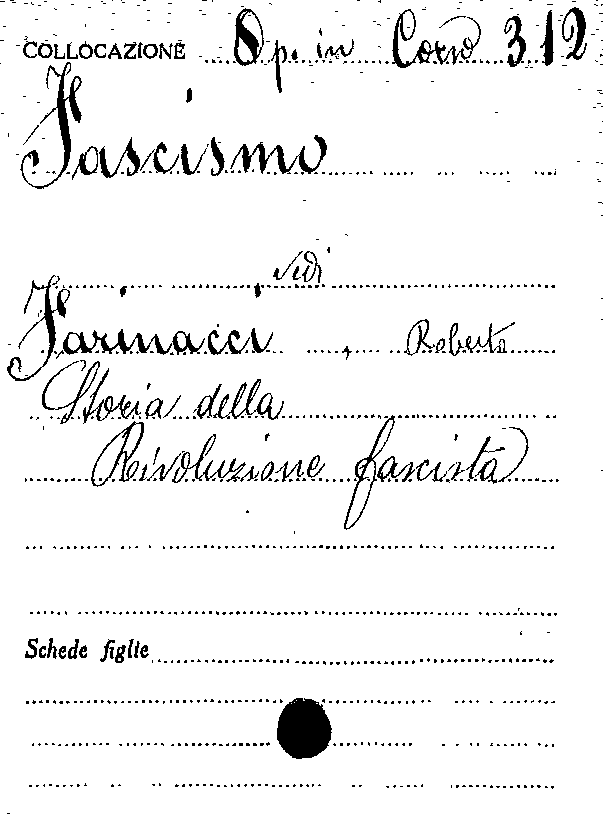 COLLOCAZIONE Op. in Corso 312
Fascismo
vedi
Farinacci, Roberto
Storia della
Rivoluzione fascista
Schede figlie